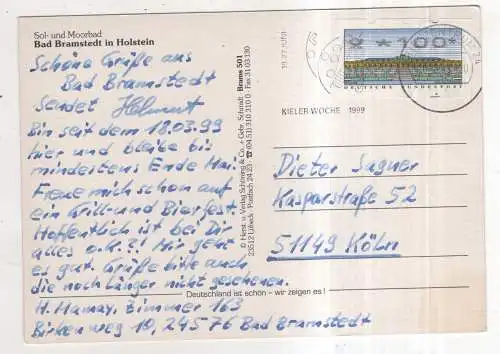 Sol- und Moorbad
Bad Bramstedt in Holstein
Schöne Grüße aus
Bad Bramstedt
sendet Helmut
Bin seit dem 18.03.99
hier und bleibe bis
mindestens Ende Mai.
Freue mich schon auf
ein Grill- und Bierfest.
Hoffentlich ist bei Dir
alles o.k.?! Mir geht
es gut. Grüße bitte auch
die noch länger nicht gesehenen.
H. Mamay, Zimmer 163
Birkenweg 10, 24576 Bad Bramstedt
© Horst u. Verlag Schöning & Co. + Gebr. Schmidt Brams 501
23512 Lübeck · Postfach 24 23 · ☎ (04 51) 310 310 · Fax 31 03 130
Deutschland ist schön – wir zeigen es!
*100*
DEUTSCHE BUNDESPOST
KIELER WOCHE 1999
Dieter Sagner
Kasparstraße 52
51149 Köln